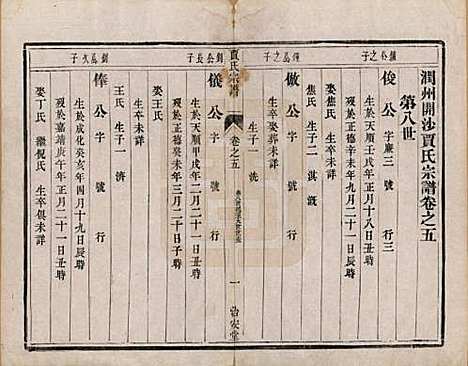 潤州開沙賈氏宗譜卷之五
第八世
鎮公之子
俊公字廉三號行三
生於天順庚辰年正月十八日丑時
歿於正德辛未年四月二十一日丑時
娶焦氏生子二淇溉
焦氏生卒未詳
鎮公之子
倣公字號行
生卒未詳
生子一洗
賈氏宗譜
卷之五
一
治安堂
釗公長子
儀公字號行
生於天順甲戌年二月二十一日時
歿於正德癸未年三月二十日子時
娶王氏
王氏生子一濟
釗公次子
俸公字號行
生於成化癸亥年四月十九日辰時
歿於嘉靖庚午年正月二十一日丑時
娶丁氏繼倪氏生卒俱未詳